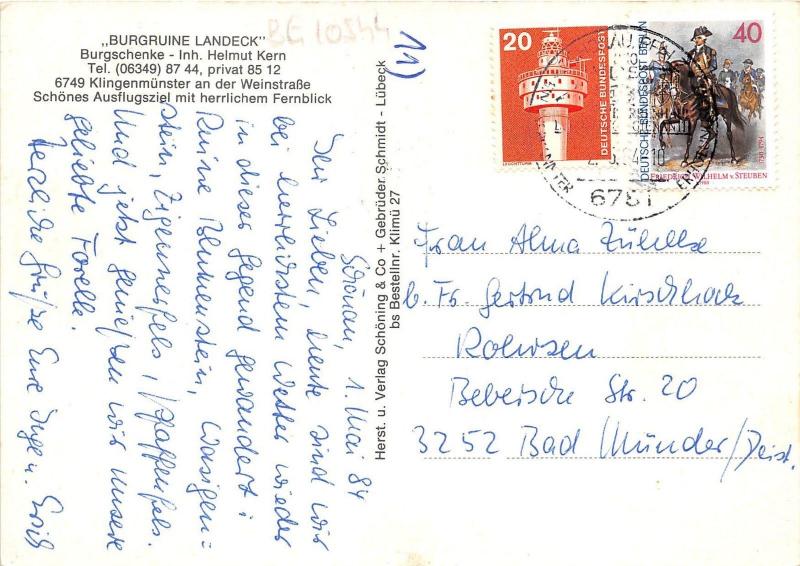 „BURGRUINE LANDECK"
Burgschenke - Inh. Helmut Kern
Tel. (06349) 87 44, privat 85 12
6749 Klingenmünster an der Weinstraße
Schönes Ausflugsziel mit herrlichem Fernblick
BG 10544
11)
20
DEUTSCHE BUNDESPOST
LEUCHTTURM
40
DEUTSCHE BUNDESPOST BERLIN
FRIEDRICH WILHELM v. STEUBEN
6781
Schönau, 1. Mai 84
Ihr Lieben, heute sind wir
bei herrlichstem Wetter wieder
in dieser Gegend gewandert:
Ruine Blumenstein, Wasigen=
stein, Zigeunerfels, Pfaffenfels.
Und jetzt genießen wir unsere
geliebte Forelle.
Herzliche Grüße Eure Inge u. Erich
Herst. u. Verlag Schöning & Co + Gebrüder Schmidt - Lübeck
bs Bestellnr. Klimü 27
Frau Alma Zühlke
b. Fr. Gertrud Kirschhock
Rohrsen
Bebersche Str. 20
3252 Bad Münder/Deist.